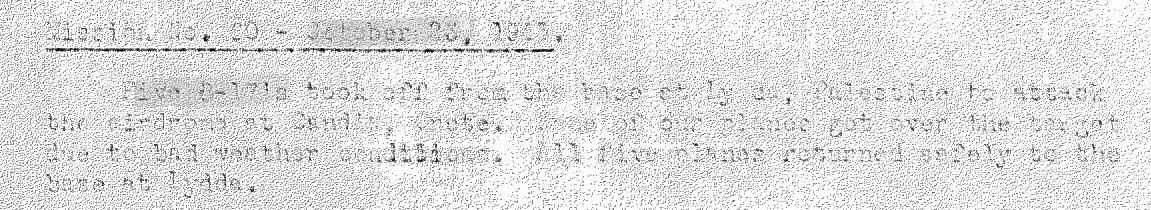 Mission No. 20 - October 28, 1942.
Five B-17's took off from the base at Lydda, Palestine to attack
the airdrome at Candia, Crete. None of our planes got over the target
due to bad weather conditions. All five planes returned safely to the
base at Lydda.